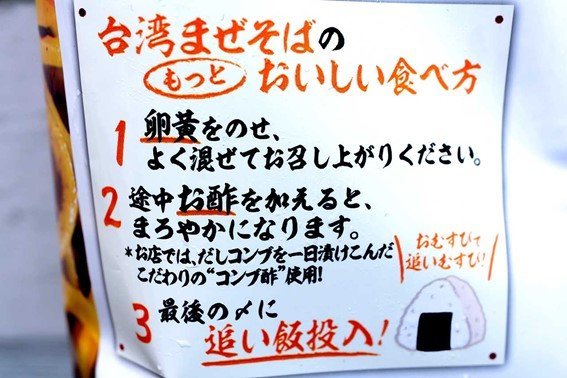 台湾まぜそばの
もっと おいしい食べ方
1 卵黄をのせ、
よく混ぜてお召し上がりください。
2 途中お酢を加えると、
まろやかになります。
*お店では、だしコンブを一日漬けこんだ
こだわりの“コンブ酢”使用!
おむすびで
追いむすび!
3 最後の〆に
追い飯投入!